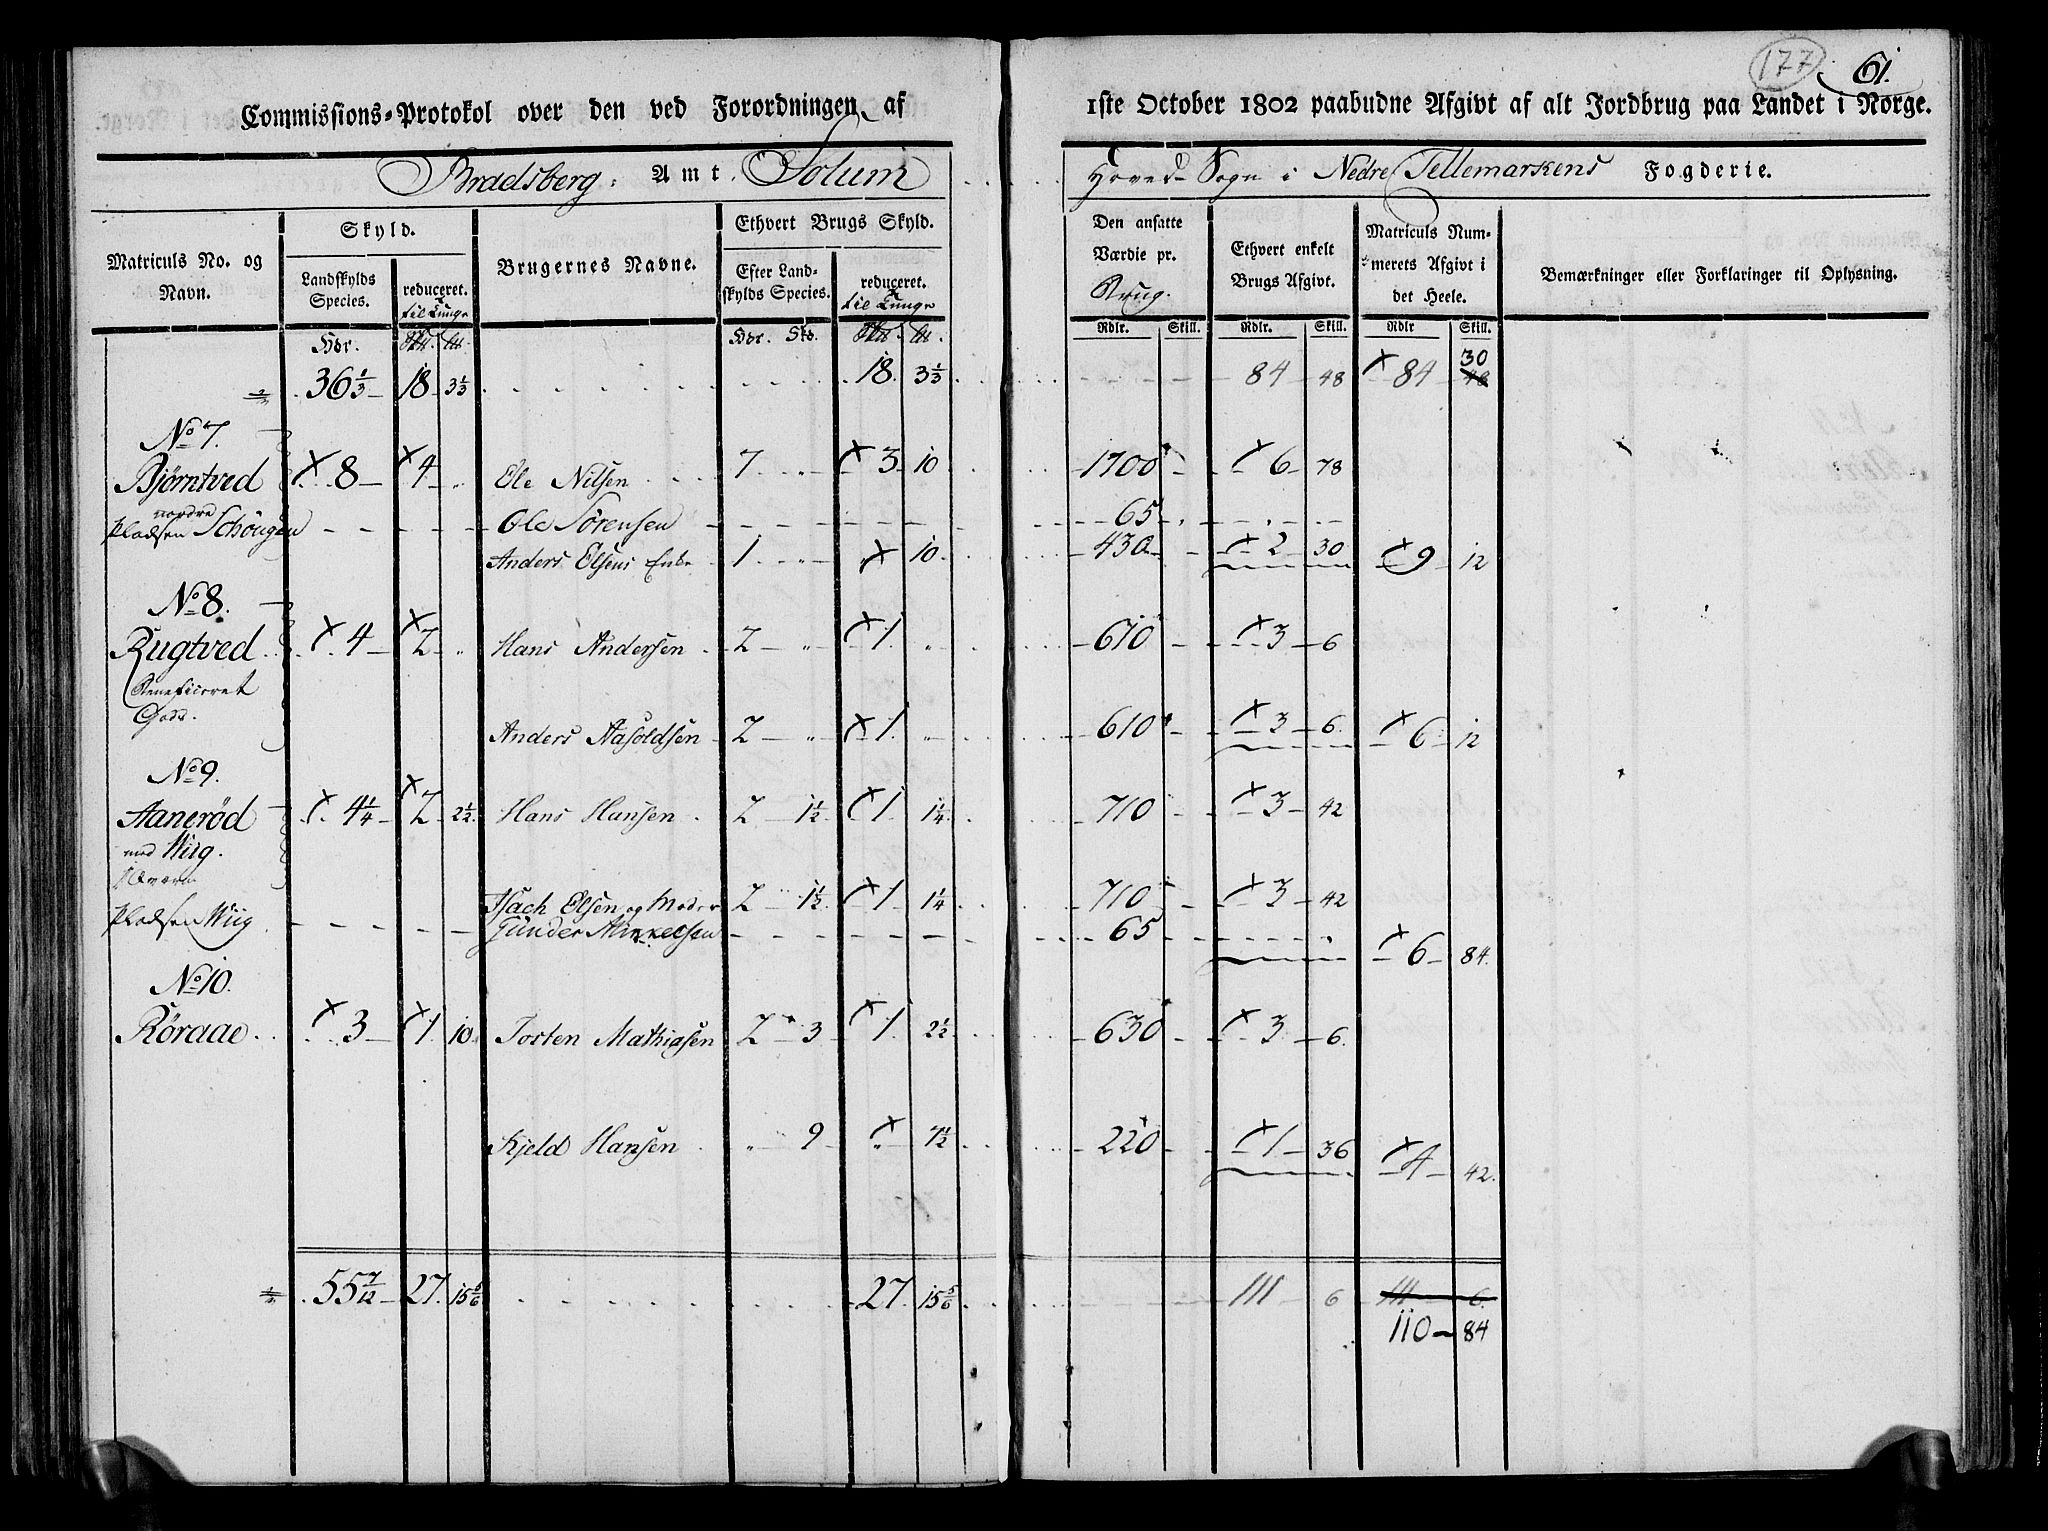 177 61.
Commissions-Protokol over den ved Forordningen af 1ste October 1802 paabudne Afgivt af alt Jordbrug paa Landet i Norge.
Bradsberg Amt. Solum Hoved-Sogn i Nedre Tellemarkens Fogderie.
Matriculs No. og Navn.
Skyld.
Landskylds Species.
reduceret.
Brugernes Navne.
Ethvert Brugs Skyld.
Efter Landskylds Species.
reduceret.
Den ansatte Værdie pr. Brug.
Ethvert enkelt Brugs Afgivt.
Matriculs Nummerets Afgivt i det Heele.
Bemærkninger eller Forklaringer til Oplysning.
Rdlr. Skill. Rdlr. Skill. Rdlr Skill.
36 1/3 18 3 1/3 18 3 1/3 84 48 84 30 48
No 7.
Bjørntved 8 4 Ele Nilsen 7 3 10 1700 6 78
nordre
Pladsen Schougen Ole Sörensen 65
Anders Elsens Enke 1 10 430 2 30 9 12
No 8.
Rugtved 4 2 Hans Andersen 2 1 610 3 6
Beneficeret
Gods.
Anders Aasoldsen 2 1 610 3 6 6 12
No 9.
Aanerød 4 1/4 2 2 1/2 Hans Hansen 2 1 1/2 1 1 1/4 710 3 42
med Wiig.
Isach Elsen og Moder 2 1 1/2 1 1 1/4 710 3 42
Pladsen Wiig Gunder Mikkelsen 65 6 84
No 10.
Röraae 3 1 10 Torsten Mathiasen 2 3 1 2 1/2 630 3 6
Kjeld Hansen 9 7 1/2 220 1 36 4 42
55 7/12 27 15 5/6 27 15 5/6 111 6 111 6
110 84